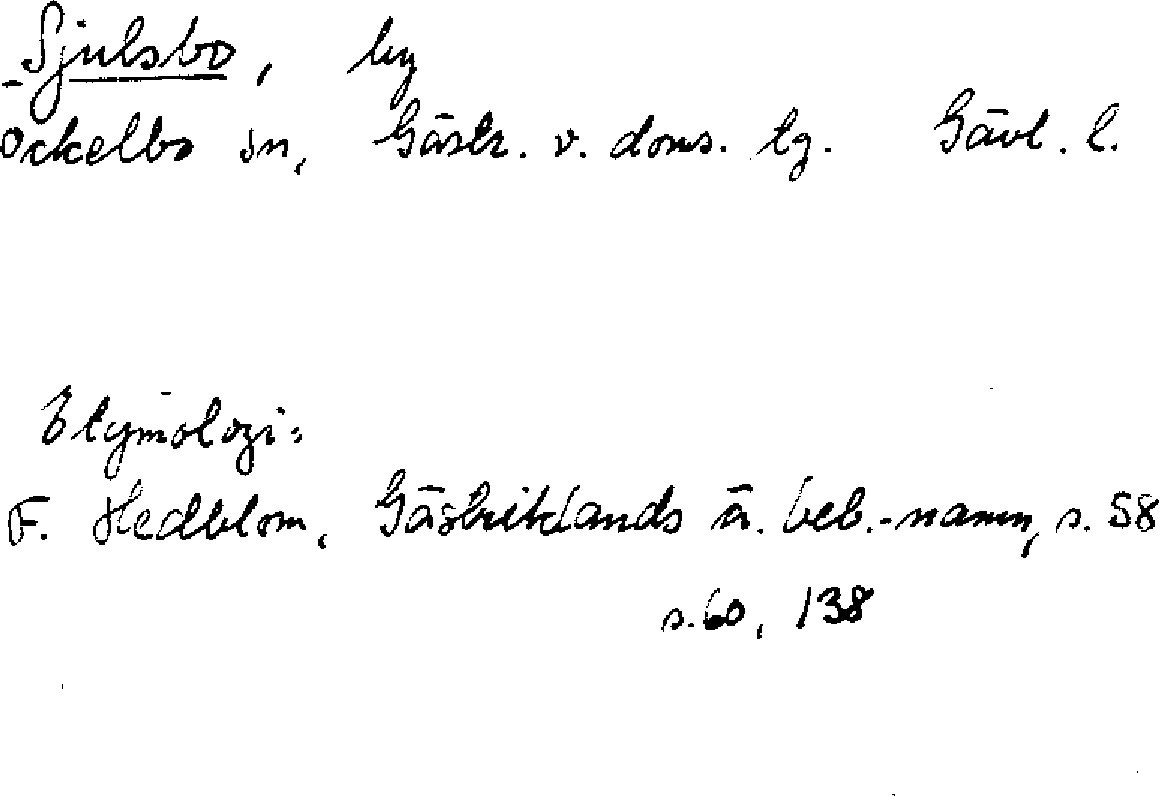 Sjulsbo, by
Ockelbo sn, Gästr. v. doms. tg. Gävl. l.
Etymologi:
F. Hedblom, Gästriklands ä. beb.-namn, s. 58
s. 60, 138